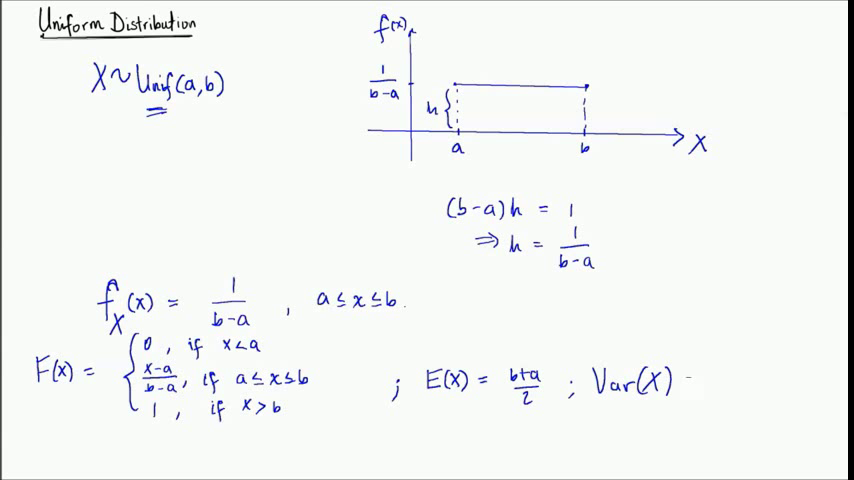 Uniform Distribution
X ~ Unif(a,b)
f(x)
1/(b-a)
h {
a b X
(b-a)h = 1
⇒ h = 1/(b-a)
f_X(x) = 1/(b-a) , a ≤ x ≤ b.
F(x) = { 0 , if x < a
(x-a)/(b-a), if a ≤ x ≤ b
1 , if x > b
; E(X) = (b+a)/2 ; Var(X) -